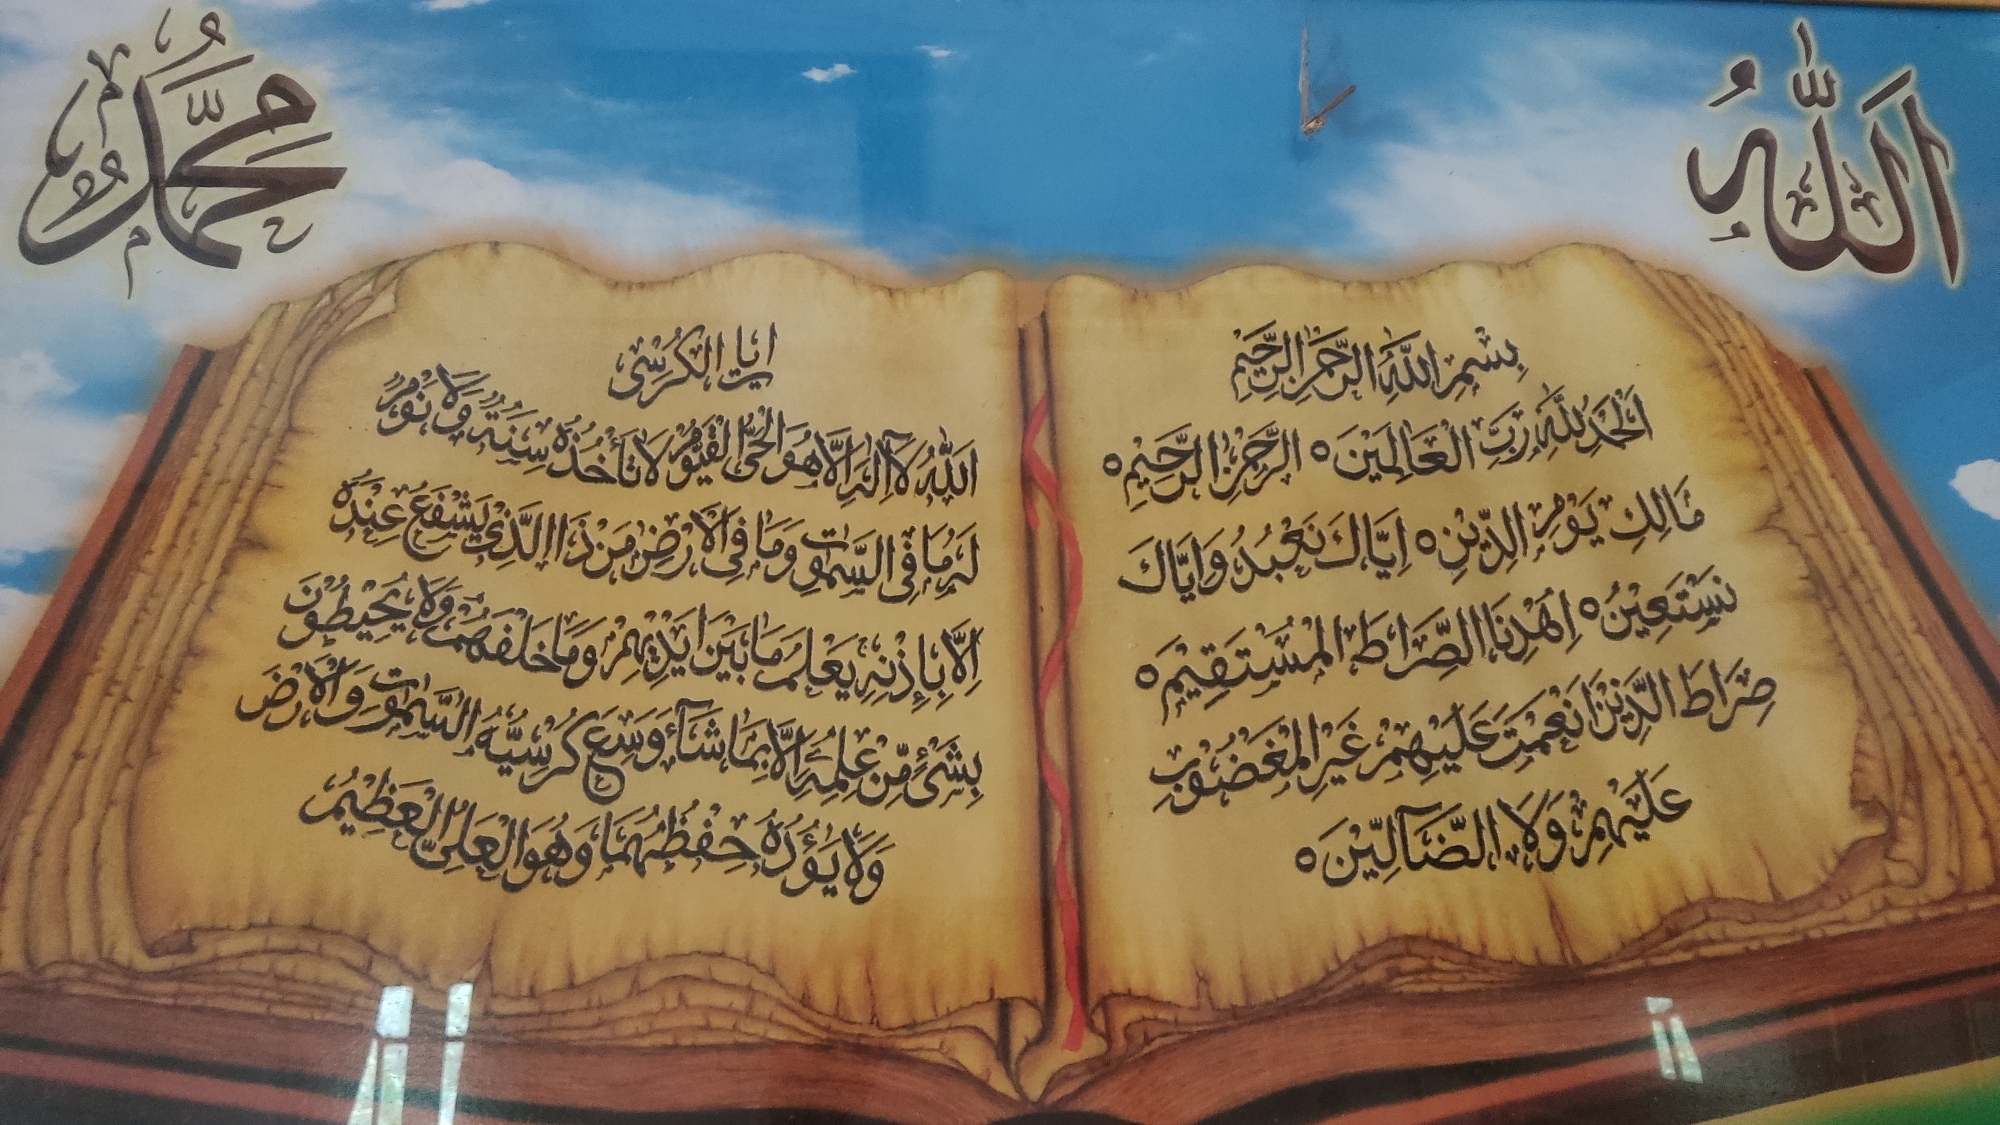 اَللّٰهُ
مُحَمَّدٌ
بِسْمِ اللَّهِ الرَّحْمٰنِ الرَّحِيْمِ
اَلْحَمْدُ لِلّٰهِ رَبِّ الْعَالَمِيْنَ ه الرَّحْمٰنِ الرَّحِيْمِ ه
مَالِكِ يَوْمِ الدِّيْنِ ه اِيَّاكَ نَعْبُدُ وَاِيَّاكَ
نَسْتَعِيْنُ ه اِهْدِنَا الصِّرَاطَ الْمُسْتَقِيْمَ ه
صِرَاطَ الَّذِيْنَ اَنْعَمْتَ عَلَيْهِمْ غَيْرِ الْمَغْضُوْبِ
عَلَيْهِمْ وَلَا الضَّآلِّيْنَ ه
ايات الكُرْسِى
اَللّٰهُ لَآ اِلٰهَ اِلَّا هُوَ الْحَىُّ الْقَيُّوْمُ لَا تَأْخُذُهُ سِنَةٌ وَّلَا نَوْمٌ
لَهُ مَا فِى السَّمٰوٰتِ وَمَا فِى الْاَرْضِ مَنْ ذَا الَّذِيْ يَشْفَعُ عِنْدَهُ
اِلَّا بِاِذْنِهٖ يَعْلَمُ مَا بَيْنَ اَيْدِيْهِمْ وَمَا خَلْفَهُمْ وَلَا يُحِيْطُوْنَ
بِشَىْءٍ مِّنْ عِلْمِهٖ اِلَّا بِمَا شَآءَ وَسِعَ كُرْسِيُّهُ السَّمٰوٰتِ وَالْاَرْضَ
وَلَا يَؤُدُهُ حِفْظُهُمَا وَهُوَ الْعَلِىُّ الْعَظِيْمُ